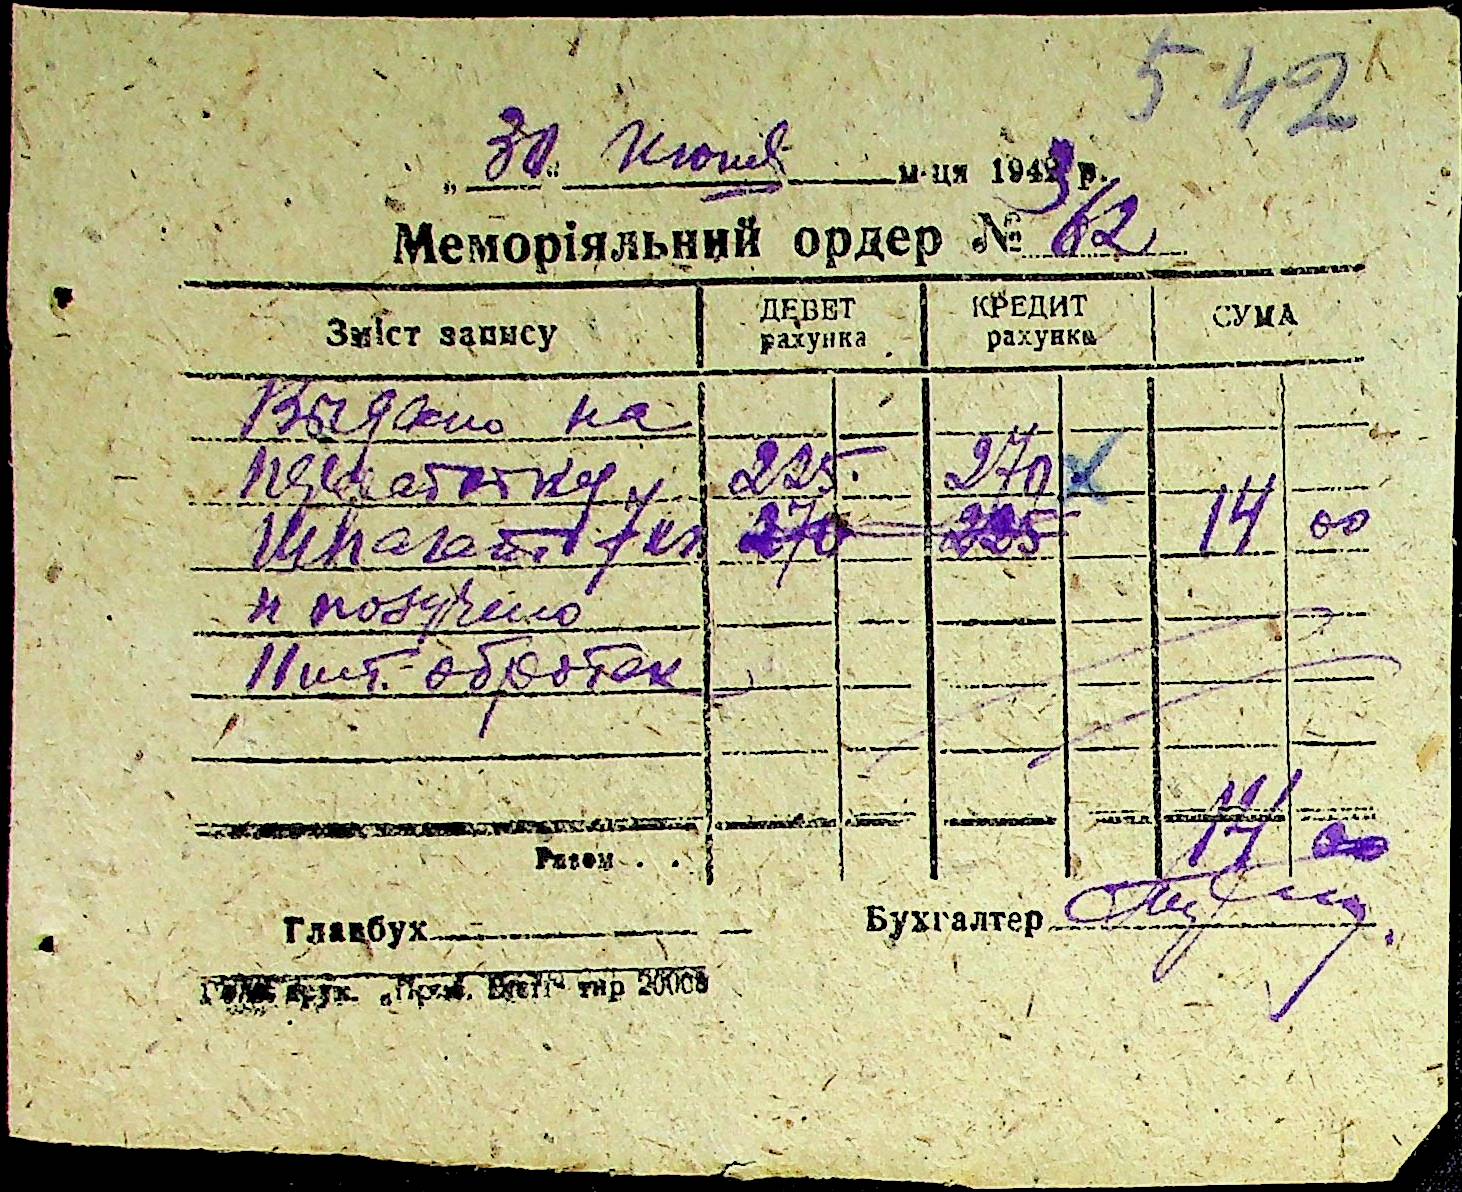 542
„30“ Июня м-ця 1943 р.
Меморіяльний ордер № 62
Зміст запису ДЕБЕТ рахунка КРЕДИТ рахунка СУМА
Выдано на
225 270
шпагат 7 кг 270 225 14 00
и получено
11 шт. обротек
Разом . . 14 00
Главбух Бухгалтер
друк. тир 20000